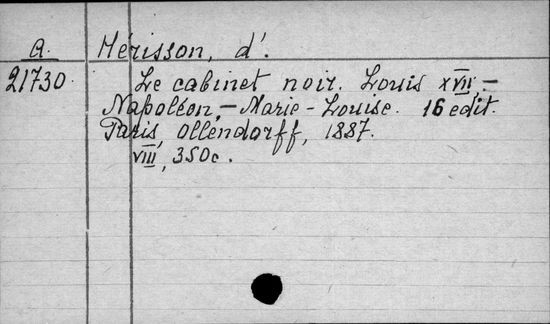 A. Hérisson, d'.
21730. Le cabinet noir. Louis XVII.–
Napoléon,–Marie-Louise. 16 edit.
Paris, Ollendorff, 1887.
VIII, 350c.